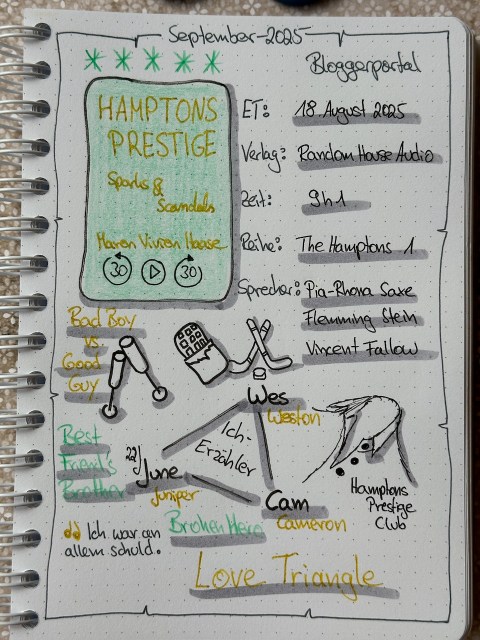 September-2025
Bloggerportal
HAMPTONS
PRESTIGE
Sparks &
Scandals
Maren Vivien Haase
30
30
ET: 18. August 2025
Verlag: Random House Audio
Zeit: 9h1
Reihe: The Hamptons 1
Sprecher: Pia-Rhona Saxe
Flemming Stein
Vincent Fallow
Bad Boy
vs.
Good
Guy
Wes
Weston
Ich-
Erzähler
Best
Friend's
Brother
22J
June
Juniper
Cam
Cameron
Hamptons
Prestige
Club
Ich war an
allem schuld.
Broken Hero
Love Triangle